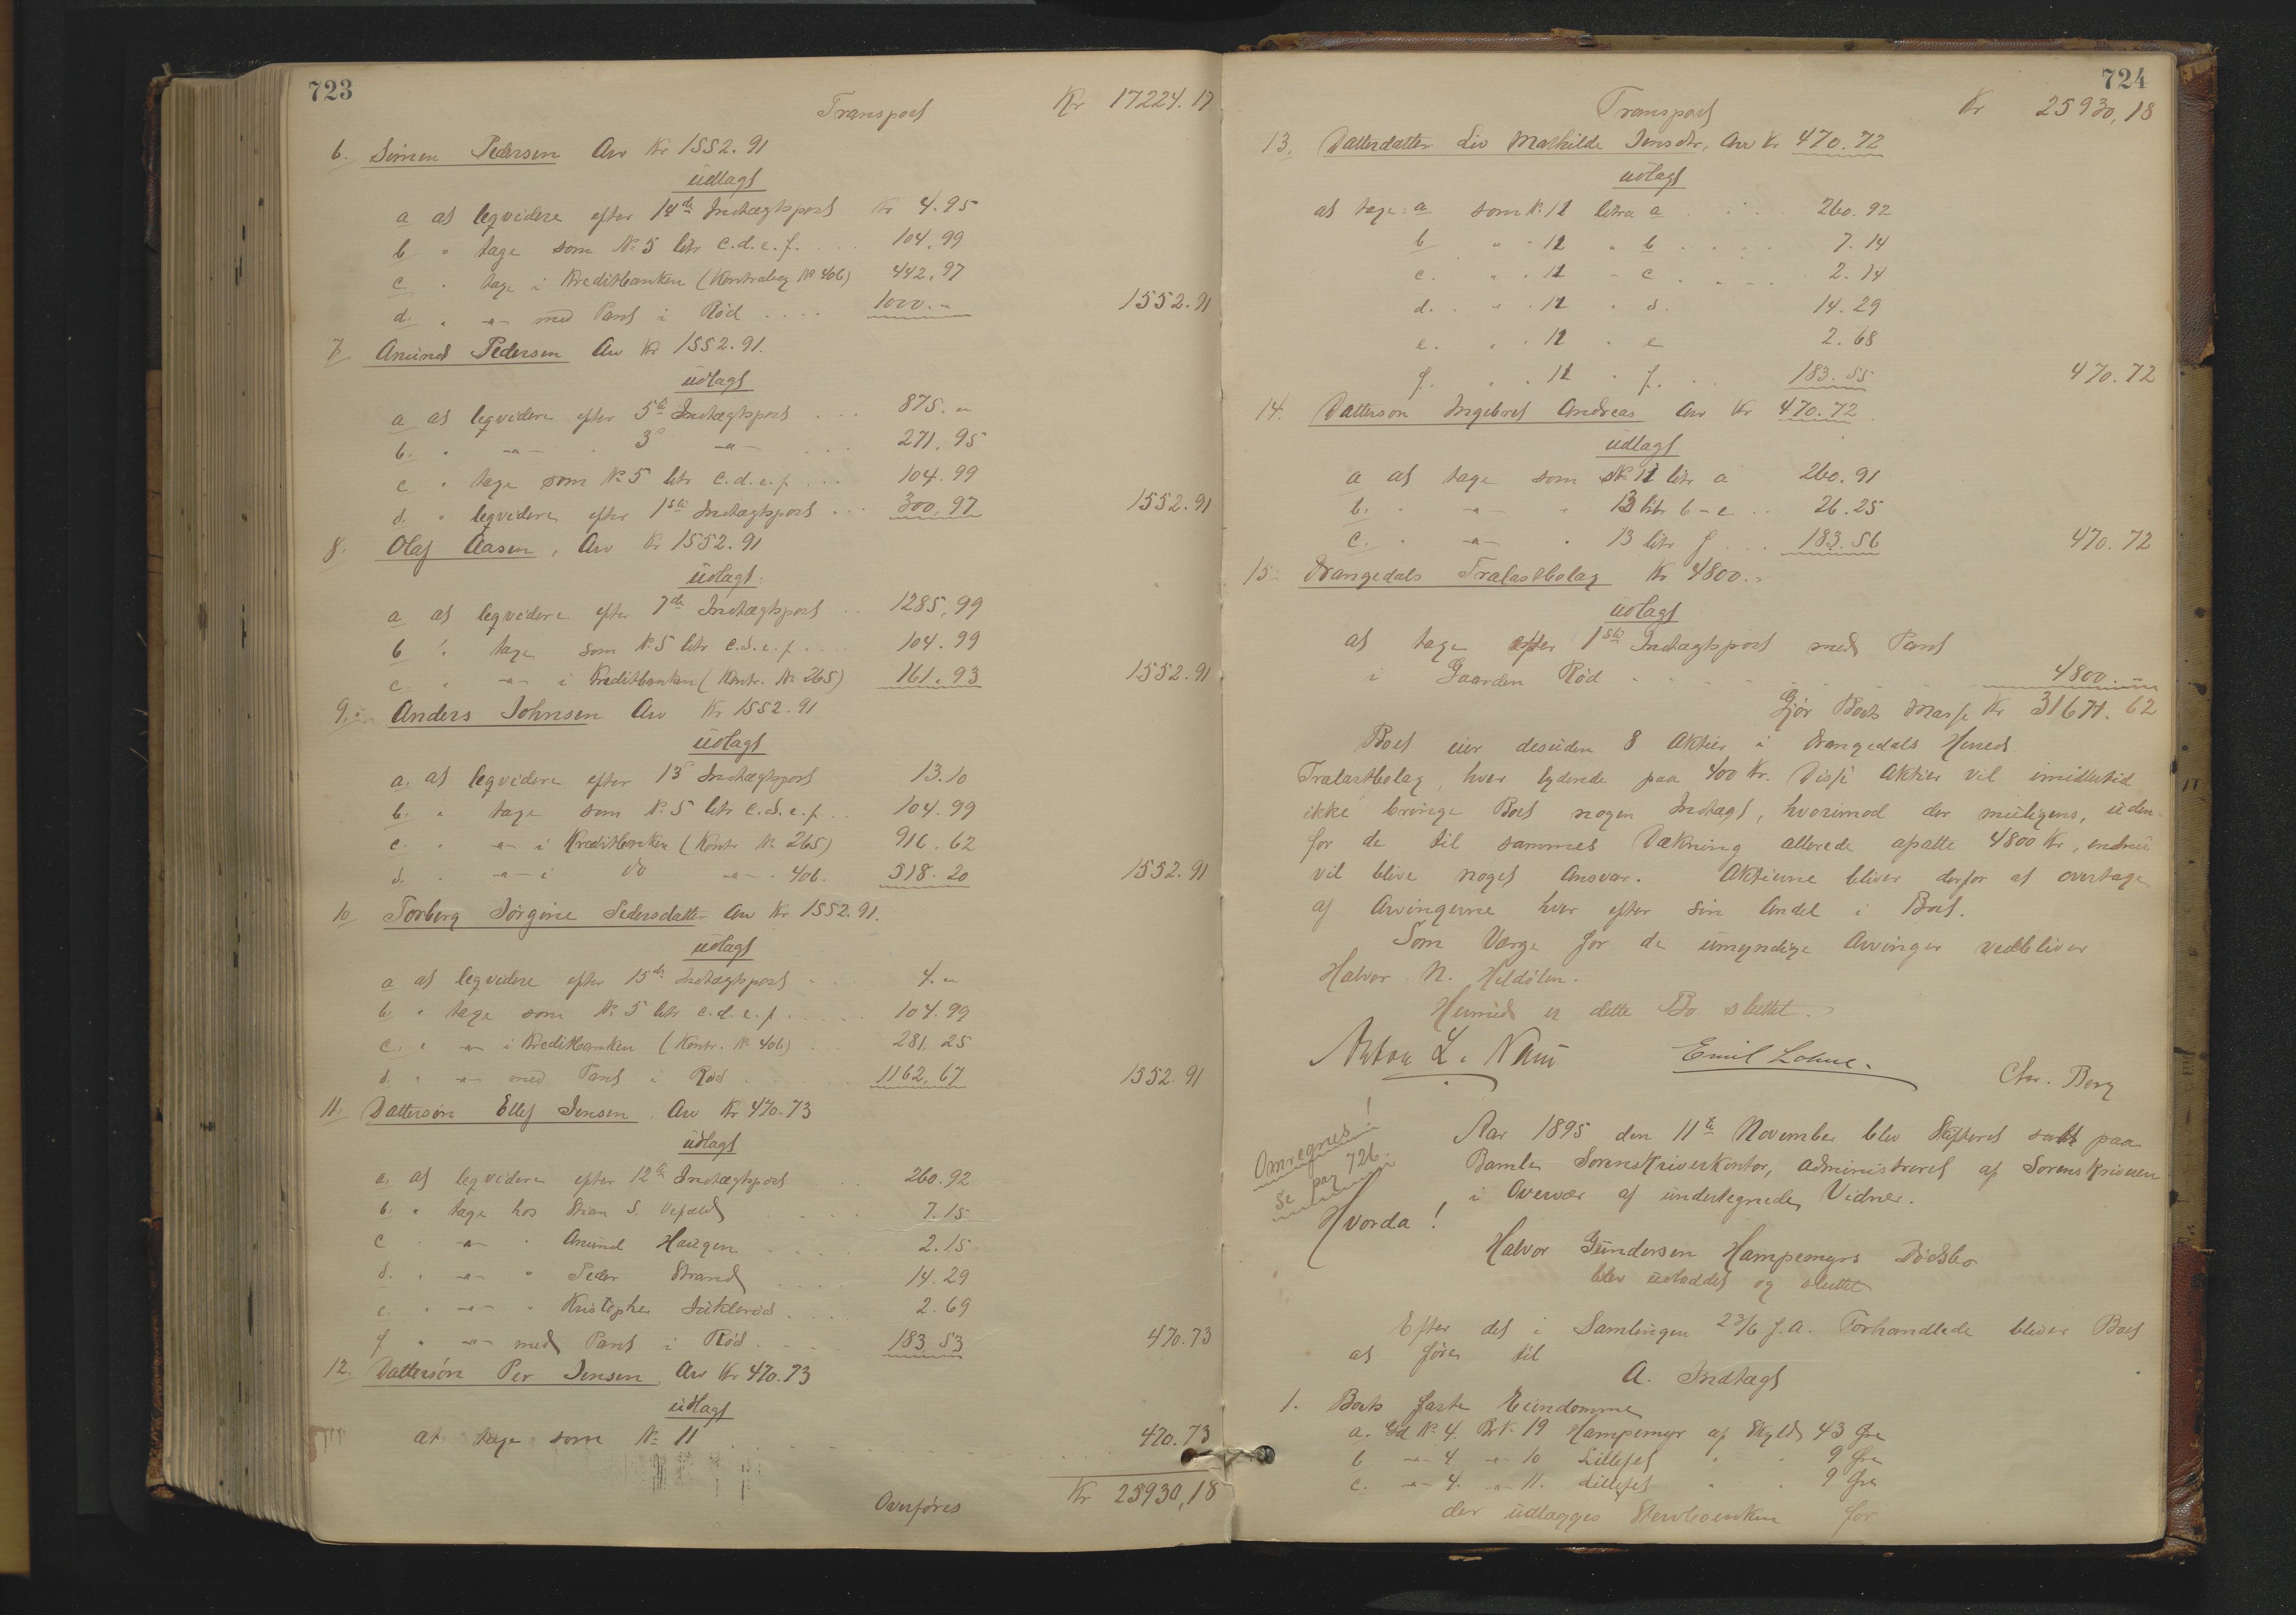 723
Transport Kr 17224.17
6. Simen Pedersen Arv Kr 1552.91
Udlagt
a at leqvidere efter 14de Indtægtspost Kr 4.95
b " tage som No 5 litr c.d.e.f. .... 104.99
c " tage i Kreditbanken (Kontrabog No 406) 442.97
d. " -"- med Pant i Rød .... 1000." 1552.91
7. Amund Pedersen Arv Kr 1552.91.
Udlagt
a at leqvidere efter 5te Indtægtspost ... 875."
b. " -"- . 3d -"- ... 271.95
c " tage som No 5 litr c.d.e.f. ... 104.99
d. " leqvidere efter 1ste Indtægtspost ... 300,97 1552.91
8. Olaf Aasen, Arv Kr 1552.91
Udlagt:
a at leqvidere efter 7de Indtægtspost .. 1285,99
b " tage som No 5 litr c.d.e.f. ... 104.99
c. " -"- i Kreditbanken (Kontr. No 265) 161.93 1552.91
9. Anders Johnsen Arv Kr 1552.91
Udlagt
a. at leqvidere efter 13d Indtægtspost 13.10
b. " tage som No 5 litr c.d.e.f. .. 104.99
c. " -"- i Kreditbanken (Kontr No 265) 916.62
d. " -"- i do -"- . 406. 518.20 1552.91
10 Torberg Jørgine Pedersdatter Arv Kr 1552.91.
Udlagt
a at leqvidere efter 15de Indtægtspost ... 4."
b. " tage som No 5 litr c.d.e.f. .... 104.99
c. " -"- i Kreditbanken (Kontr. No 406) ... 281.25
d. " -"- med Pant i Rød ..... 1162,67 1552.91
11. Dattersøn Ellef Jensen. Arv Kr 470.73
Udlagt
a. at leqvidere efter 12te Indtægtspost .. 260.92
b. " tage hos Stian S. .... 7.15
c " -"- " Amund Haugen .... 2.15
d. " -"- " Peder Strand .... 14.29
e. " -"- " Kristopher .... 2.69
f " -"- med Pant i Rød .... 183.53 470.73
12. Dattersøn Per Jensen Arv Kr 470.73
Udlagt
at tage som No 11 ........ 470.73
Overføres Kr 25930,18
724
Transport Kr 25930,18
13. Datterdatter Liv Mathilde Jensdtr, Arv Kr 470.72
Udlagt
at tage: a som No 11 litra a .... 260.92
b " " 11 " b .... 7.14
c. " " 11 " c .... 2.14
d. " " 11 " d. 14.29
e. " " 11 " e 2.68
f. " " 11 " f. .. 183.55 470.72
14. Dattersøn Ingebret Andreas Arv Kr 470.72.
Udlagt
a at tage som No 11 litr a 260.91
b. " -"- " 13 litr b-e .. 26.25
c. " -"- " 13 litr f ... 183.56 470.72
15. Drangedals Tralastbolag Kr 4800."
Udlagt
at tage efter 1ste Indtægtspost med Pant
i Gaarden Rød ........ 4800."
Gjør Boets Masse Kr 31671.62
Boet eier desuden 8 Aktier i Drangedals Herreds
Tralastbolag, hver lydende paa 400 Kr. Disse Aktier vil imidlertid
ikke bringe Boet nogen Indtægt, hvorimod der muligens, uden-
for de til sammes Dækning allerede afsatte 4800 Kr, endnu
vil blive noget Ansvar. Aktierne bliver derfor at overtage
af Arvingerne hver efter sin Andel i Boet.
Som Værge for de umyndige Arvinger vedbliver
Halvor N. Heldølen.
Hermed er dette Bo sluttet.
Anton L. Emil Lohne. Chr. Berg
Omregnes!
Se pag 726.
Hvorda!
Aar 1895 den 11te November blev Skifteret sat paa
Bamle Sorenskriverkontor, administreret af Sorenskriveren
i Overvær af undertegnede Vidner.
Halvor Gundersen Hampemyrs Dødsbo
blev udloddet og sluttet
Efter det i Samlingen 23/6 f.A. Forhandlede bliver Boet
at føre til
A. Indtægt
1. Boets faste Eiendomme
a. Gd No 4. Bk 19 Hampemyr af Skyld 43 Øre
b -"- 4 -"- 10 Lillefjet " . 9 Øre
c. -"- 4. -"- 11. Lillefjet " . 9 Øre
der udlægges Stervboenken for